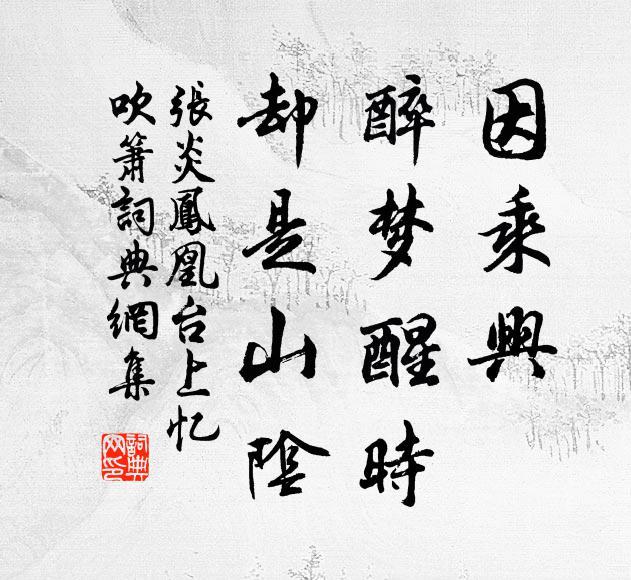 因乘興
醉梦醒時
却是山陰
張炎鳳凰台上忆
吹簫詞典網集
詞典网印